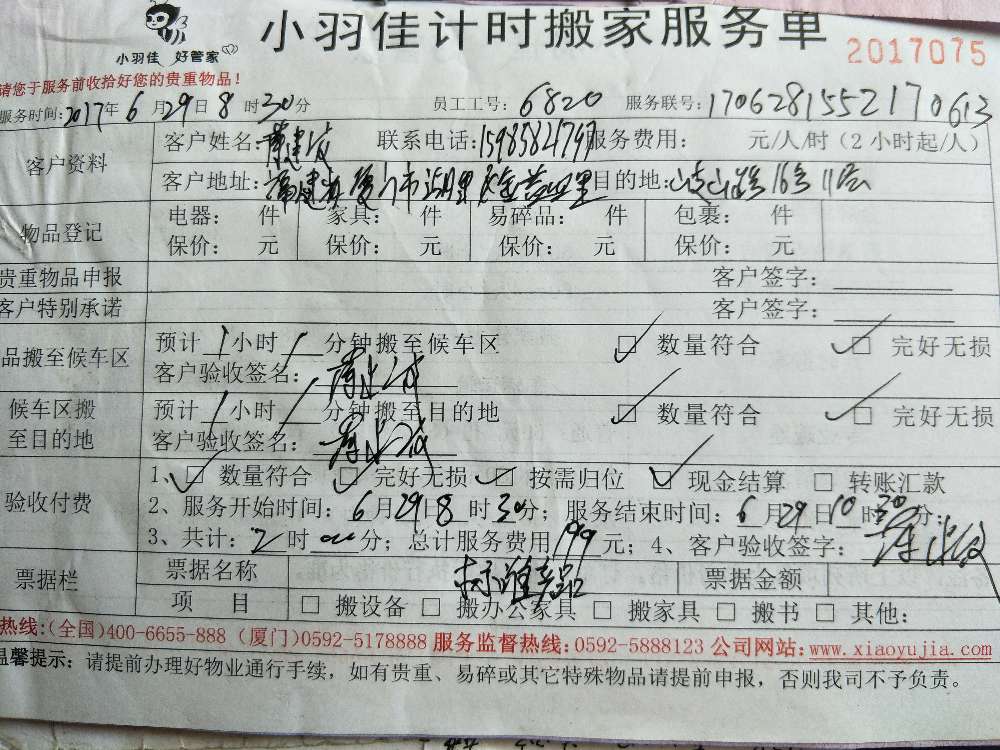 小羽佳 好管家
小羽佳计时搬家服务单
2017075
请您于服务前收拾好您的贵重物品！
服务时间:2017年6月29日8时30分 员工工号:6820 服务联号:1706281552170613
客户资料
客户姓名: 联系电话:15985821797 服务费用: 元/人/时（2小时起/人）
客户地址:福建省厦门市湖里区 目的地: 16号11层
物品登记
电器: 件 家具: 件 易碎品: 件 包裹: 件
保价: 元 保价: 元 保价: 元 保价: 元
贵重物品申报 客户签字:
客户特别承诺 客户签字:
品搬至候车区
预计 / 小时 / 分钟搬至候车区 数量符合 完好无损
客户验收签名:
候车区搬至目的地
预计 / 小时 / 分钟搬至目的地 数量符合 完好无损
客户验收签名:
验收付费
1、数量符合 完好无损 按需归位 现金结算 转账汇款
2、服务开始时间: 6月29日8时30分; 服务结束时间: 6月29日10时30分;
3、共计: 2时00分; 总计服务费用199元; 4、客户验收签字:
票据栏
票据名称 票据金额
项目 搬设备 搬办公家具 搬家具 搬书 其他:
热线:(全国)400-6655-888 (厦门)0592-5178888 服务监督热线:0592-5888123 公司网站:www.xiaoyujia.com
温馨提示: 请提前办理好物业通行手续，如有贵重、易碎或其它特殊物品请提前申报，否则我司不予负责。